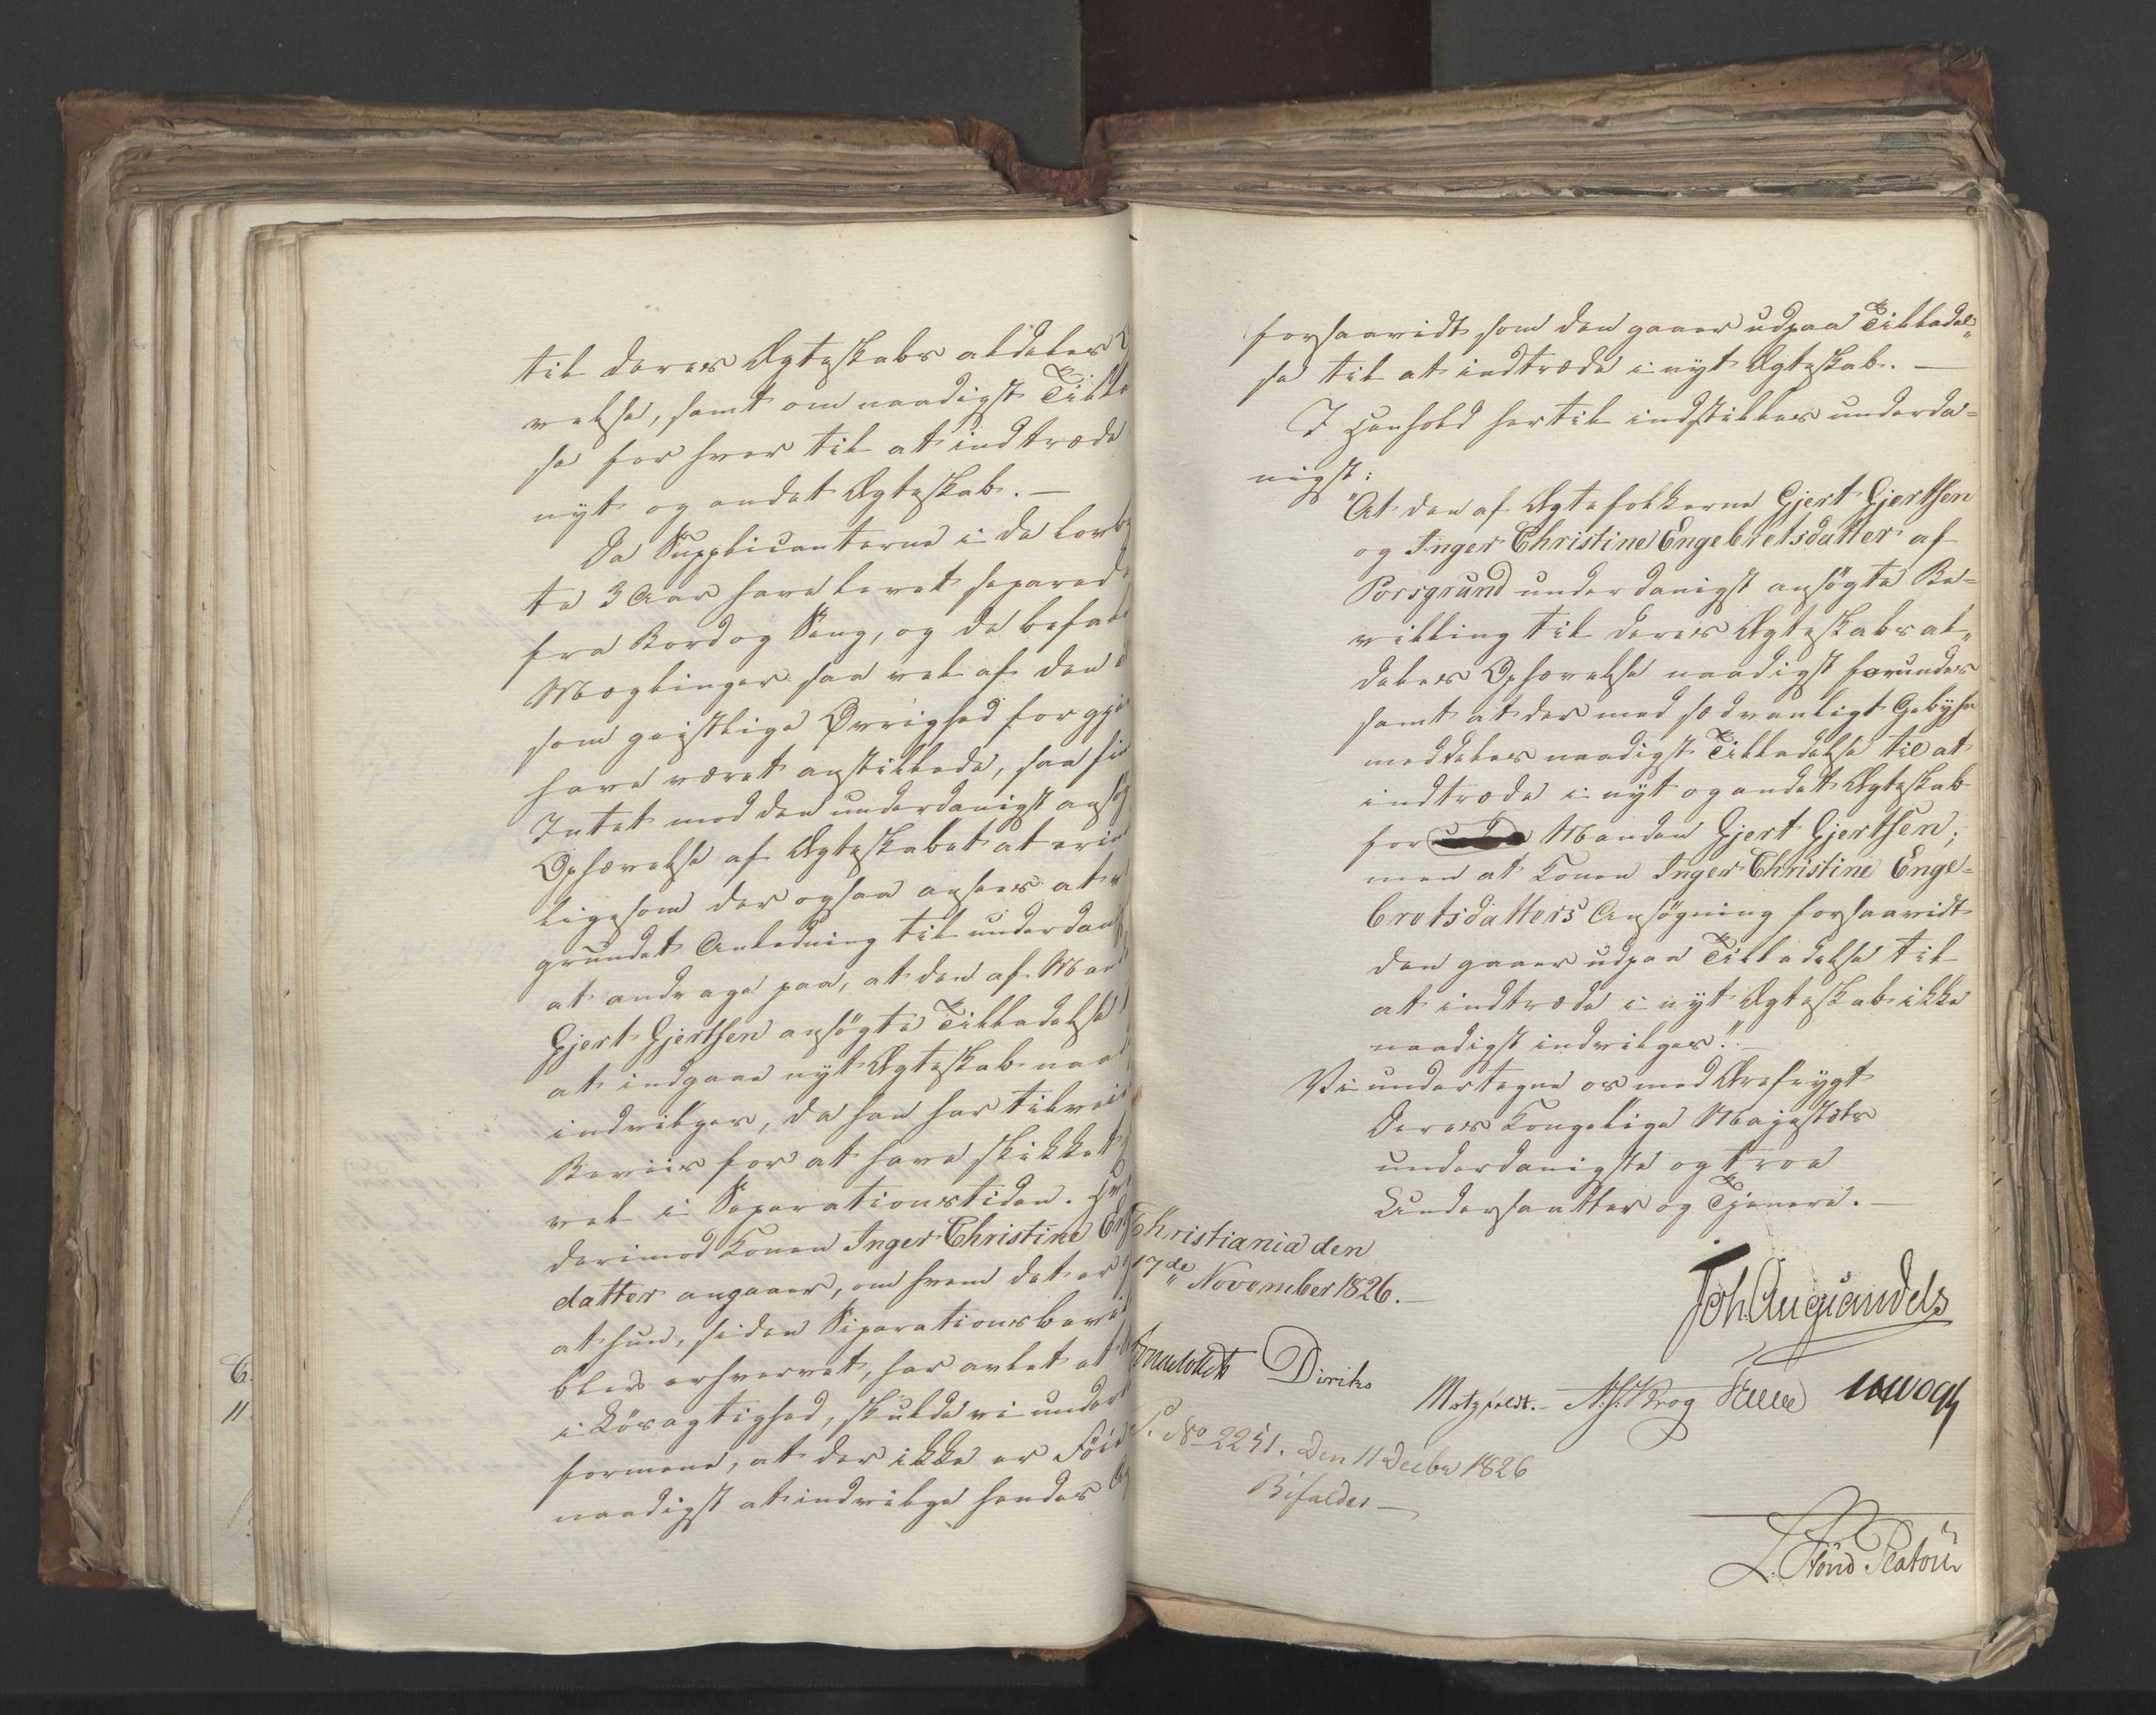 til deres Ægteskabs aldeles
velse, samt om naadigst Tilla
se for hver til at indtræde
nyt og andet Ægteskab. —
Da Supplicanterne i de lovb
te 3 Aar have levet separered
fra Bord og Seng, og de befale
Mæglinger saa vel af den
som geistlige Øvrighed forgje
have været anstillede, saa fin
Intet mod den underdanigst ansøg
Ophævelse af Ægteskabet at erin
ligesom der ogsaa ansees at v
grundet Anledning til underdan
at andrage paa, at den af Mand
Gjert Gjertsen ansøgte Tilladelse
at indgaae nyt Ægteskab naad
indvilges, da han har tilvei
Beviis for at have skikket
vel i Separationstiden. Hv
derimod Konen Inger Christine Eng
datter angaaer, om hvem det er
at hun, siden Separationsbevil
blev erhvervet, har avlet et
i Løsagtighed, skulde vi under
formene, at der ikke er Föie
naadigst at indvilge hendes
forsaavidt som den gaaer udpaa Tilladel„
se til at indtræde i nyt Ægteskab. —
I Henhold hertil indstilles underda=
nigst:
"At den af Ægtefolkene Gjert Gjertsen
og Inger Christine Engebretsdatter af
Porsgrund underdanigst ansøgte Be=
villing til deres Ægteskabs al„
deles Ophævelse naadigst forundes
samt at der mod sædvanligt Gebyhr
meddeles naadigst Tilladelse til at
indtræde i nyt og andet Ægteskab
for Manden Gjert Gjertsen;
men at Konen Inger Christine Enge=
bretsdatters Ansøgning forsaavidt
den gaaer udpaa Tilladelse til
at indtræde i nyt Ægteskab ikke
naadigst indvilges." —
Vi undertegne os med Ærefrygt
Deres Kongelige Majestæts
underdanigste og troe
Undersaatter og Tjenere. —
Christiania den
17de November 1826. —
Joh. Aug. Sandels
Diriks
Motzfeldt. N. J. Krog
P. No 2251. Den 11 Decbr 1826
Bifaldes —